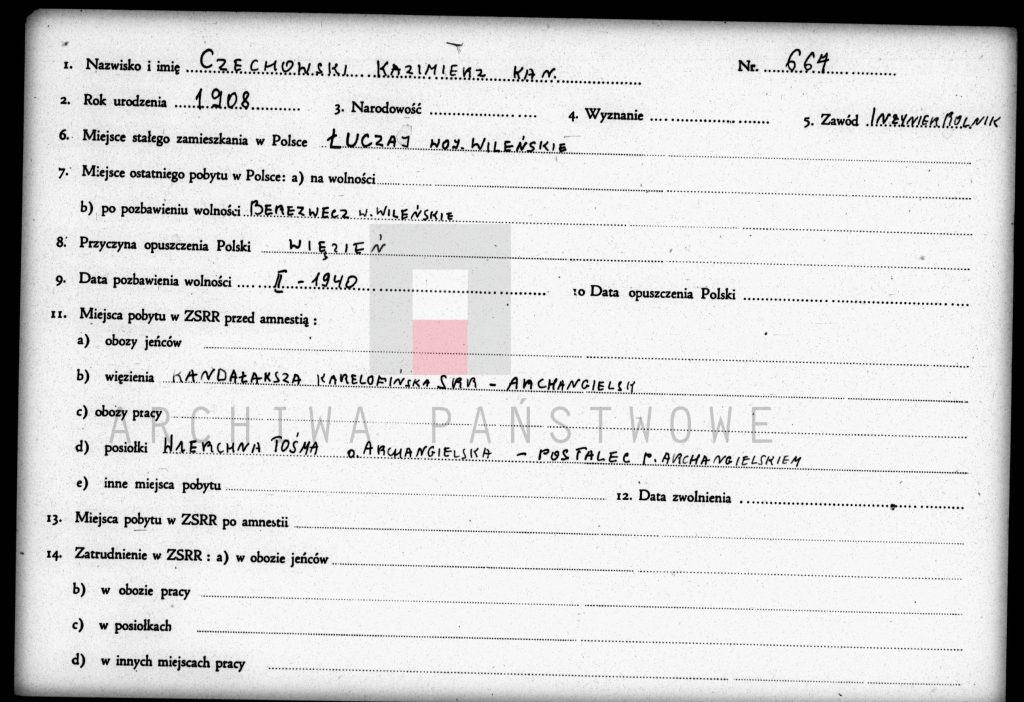 1. Nazwisko i imię CZECHOWSKI KAZIMIERZ KAN. Nr. 664
2. Rok urodzenia 1908 3. Narodowość 4. Wyznanie 5. Zawód INŻYNIER ROLNIK
6. Miejsce stałego zamieszkania w Polsce ŁUCZAJ WOJ. WILEŃSKIE
7. Miejsce ostatniego pobytu w Polsce: a) na wolności
b) po pozbawieniu wolności BEREZWECZ W. WILEŃSKIE
8. Przyczyna opuszczenia Polski WIĘZIEŃ
9. Data pozbawienia wolności II - 1940 10 Data opuszczenia Polski
11. Miejsca pobytu w ZSRR przed amnestią :
a) obozy jeńców
b) więzienia KANDAŁAKSZA KARELOFIŃSKA SRR - ARCHANGIELSK
ARCHIWA PAŃSTWOWE
c) obozy pracy
d) posiołki TOŚMA o. ARCHANGIELSKA - POSTALEC P. ARCHANGIELSKIEM
e) inne miejsca pobytu 12. Data zwolnienia
13. Miejsca pobytu w ZSRR po amnestii
14. Zatrudnienie w ZSRR : a) w obozie jeńców
b) w obozie pracy
c) w posiołkach
d) w innych miejscach pracy